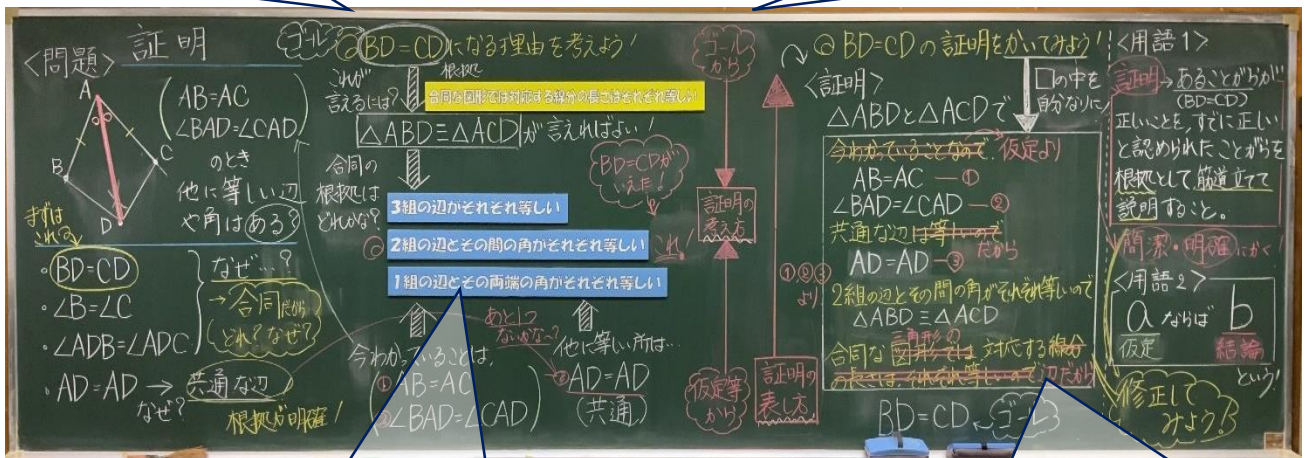 <問題> 証明
A
B
C
D
AB=AC
∠BAD=∠CAD
のとき
他に等しい辺
や角はある?
まずは
これ?
・BD=CD
・∠B=∠C
・∠ADB=∠ADC
・AD=AD → 共通な辺
なぜ?
なぜ…?
→合同だから
どれ?なぜ?
根拠が明確!
ゴール
◎BD=CDになる理由を考えよう!
これが
言えるには?
根拠
合同な図形では対応する線分の長さはそれぞれ等しい
△ABD≡△ACDが言えればよい!
合同の
根拠は
どれかな?
BD=CDが
いえた!
3組の辺がそれぞれ等しい
◎ 2組の辺とその間の角がそれぞれ等しい
これ!
1組の辺とその両端の角がそれぞれ等しい
あと1つ
ないかな?
今わかっていることは、
①AB=AC
②∠BAD=∠CAD
他に等しい所は…
③AD=AD
(共通)
ゴール
から
証明の
考え方
仮定等
から
証明の
表し方
◎BD=CDの証明をかいてみよう!
<証明>
□の中を
自分なりに
△ABDと△ACDで
今わかっていることなので 仮定より
AB=AC ―①
∠BAD=∠CAD ―②
共通な辺は等しいので
だから
AD=AD ―③
①②③
より
2組の辺とその間の角がそれぞれ等しいので
△ABD≡△ACD
三角形の
合同な図形では 対応する線分
の長さは、それぞれ等しいので 辺だから
BD=CD ←ゴール
<用語1>
証明→あることがらが
(BD=CD)
正しいことを、すでに正しい
と認められたことがらを
根拠として、筋道立てて
説明すること。
簡潔・明確にかく!
<用語2>
a ならば b
仮定 結論
という!
修正して
みよう!